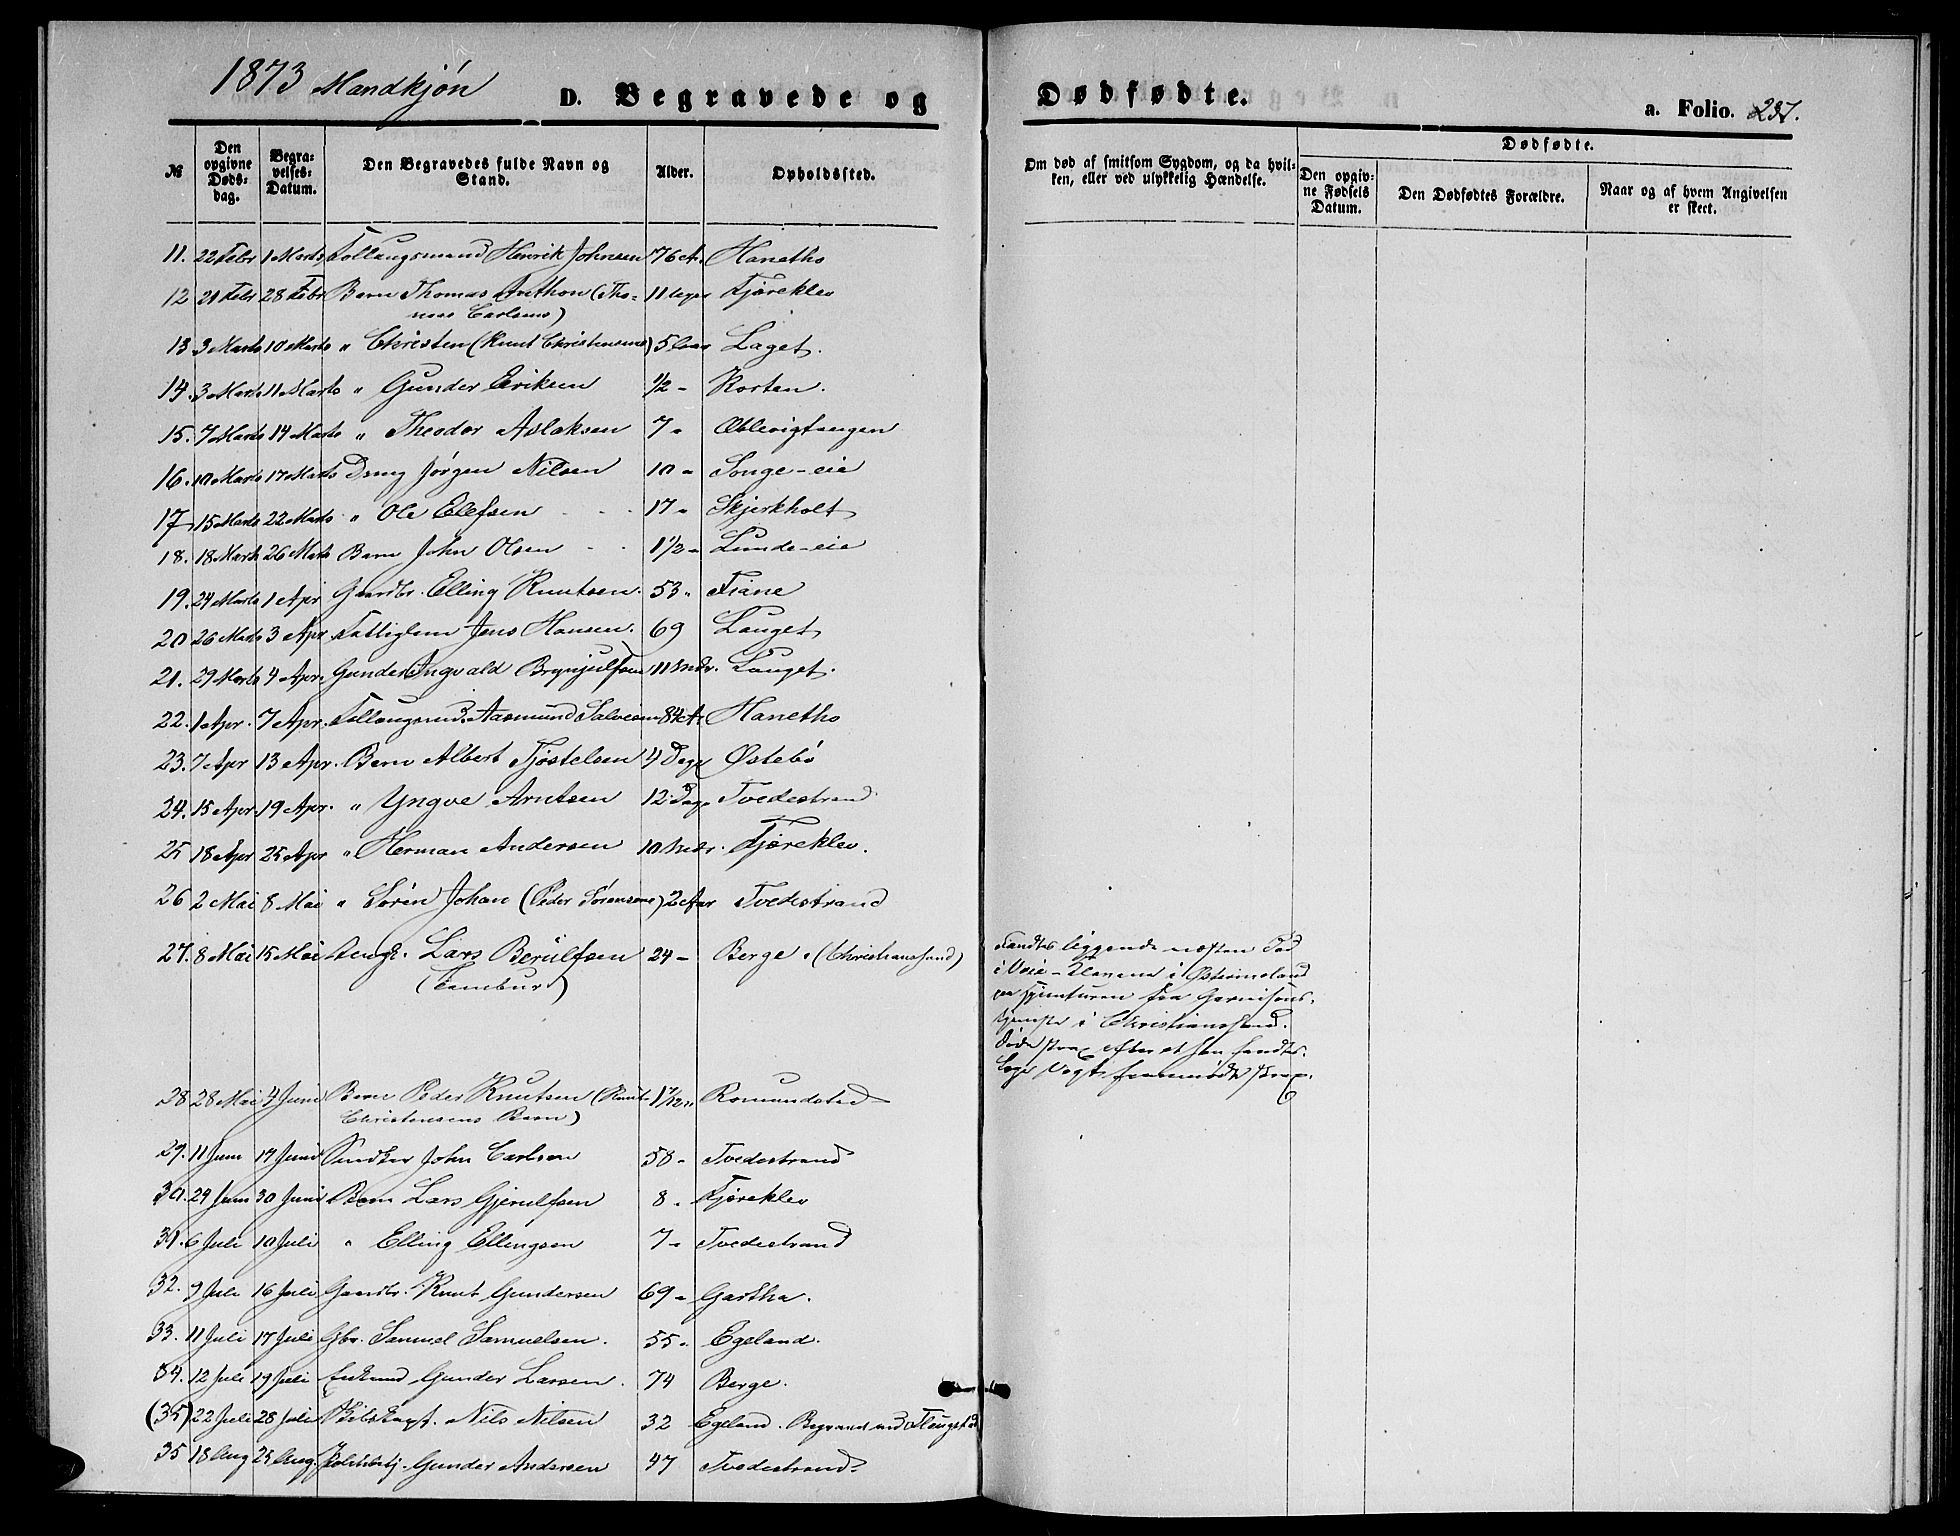 1873 Mandkjøn
D. Begravede og Dødfødte.
a. Folio. 237.
№
Den opgivne Dødsdag.
Begravelses-Datum.
Den Begravedes fulde Navn og Stand.
Alder.
Opholdssted.
Om død af smitsom Sygdom, og da hvilken, eller ved ulykkelig Hændelse.
Dødfødte.
Den opgivne Fødsels Datum.
Den Dødfødtes Forældre.
Naar og af hvem Angivelsen er skeet.
11. 22 Febr 1 Marts Follaugsmand Henrik Johnsen 76 A. Hanetho
12 21 Febr 28 Febr Barn Thomas (Tho- 11 Uger Fjæreklev
mas Carlsens)
13 3 Marts 10 Marts " Christen (Knut Christensens) 5 Laget.
14. 3 Marts 11 Marts " Gunder Eriksen 1/2 - Rostan.
15. 7 Marts 14 Marts " Theodor Aslaksen 7 " Æblevigtangen
16. 10 Marts 17 Marts Dreng Jørgen Nilsen 10 " Songe-eie
17 15 Marts 22 Marts " Ole Elefsen 17 " Skjerkholt
18. 18 Marts 26 Marts Barn John Olsen 1 1/2 " Lunde-eie
19. 24 Marts 1 Apr Gaardbr. Elling Knutsen. 53 " Fiane
20 26 Marts 3 Apr Fattiglem Jens Hansen. 69 Lauget
21. 29 Marts 4 Apr. Gunder Ingvald Brynjulfsen 11 Mdr. Lauget.
22. 1 Apr. 7 Apr. Aasmund Salvesen 84 A. Hanetho
23. 7 Apr 13 Apr. Barn Albert Tjøstelsen 4 Dage Østebø
24. 15 Apr. 19 Apr. " Yngve Arntsen 12 Dage Tvedestrand
25 18 Apr 25 Apr " Herman Andersen 10 Mdr. Fjæreklev.
26 2 Mai 8 Mai " Søren Johan (Peder Sørensens) 2 Aar Tvedestrand
27. 8 Mai 15 Mai Ungk. Lars Berulfsen 24 - Berge. (Christianssand)
(Tambur)
Fandtes liggende næsten Død
i Veie- i Østerimeland
paa Hjemturen fra Garnisons-
tjeneste i Christianssand.
Døde strax efter at han fandtes.
Læge Vogt fremmødte strax.
28 28 Mai 4 Juni Barn Peder Knutsen (Knut 1 7/12 " Romundstad
Christensens Barn)
29. 11 Juni 17 Juni Snedker John Carlsen 58 - Tvedestrand
30. 24 Juni 30 Juni Barn Lars Gjerulfsen 8 " Fjæreklev
31. 6 Juli 10 Juli " Elling Ellingsen 7 - Tvedestrand
32. 9 Juli 16 Juli Gaardbr. Knut Gundersen 69 - Gartha.
33. 11 Juli 17 Juli Gbr. Samuel Samuelsen. 55 " Egeland.
34. 12 Juli 19 Juli Enkemand Gunder Larsen. 74 Berge.
(35) 22 Juli 28 Juli Skibskapt. Nils Nilsen 32 Egeland. Begraved ved Flaugstad
35 18 Aug 25 Aug. Gunder Andersen 47 Tvedestrand.